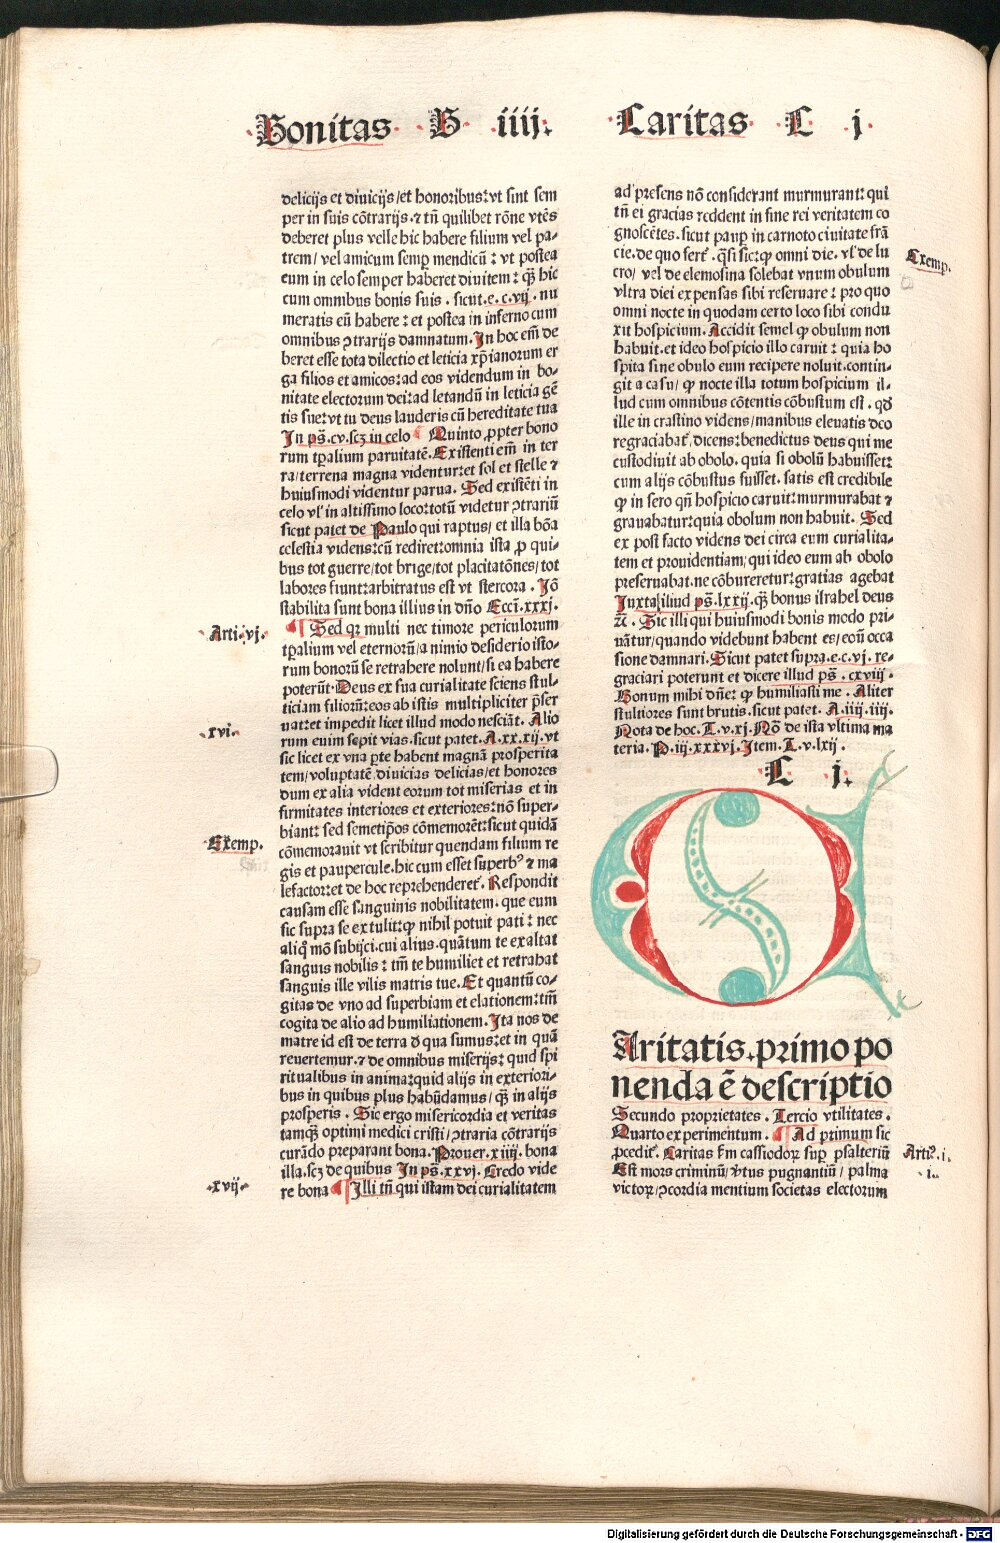 Bonitas B iiij.
Caritas C j
delicijs et diuicijs/et honoribus:vt sint sem
per in suis cõtrarijs.⁊ tñ quilibet rõne vtẽs
deberet plus velle hic habere filium vel pa-
trem/ vel amicum semꝑ mendicũ: vt postea
eum in celo semper haberet diuitem: qꝫ hic
cum omnibus bonis suis. sicut.e.c.vij.nu
meratis eũ habere: et postea in inferno cum
omnibus ↄtrarijs damnatum.In hoc em̃ de
beret esse tota dilectio et leticia xp̃ianorum er
ga filios et amicos:ad eos videndum in bo-
nitate electorum dei:ad letandũ in leticia gẽ
tis sue:vt tu deus lauderis cũ hereditate tua
In ps̃.cv.scꝫ in celo Quinto ꝓpter bono
rum tꝑalium paruitatẽ.Existenti em̃ in ter
ra/terrena magna videntur:et sol et stelle ⁊
huiusmodi videntur parua. Sed existẽti in
celo vl' in altissimo loco:totũ videtur ↄtrariũ
sicut patet de Paulo qui raptus/ et illa bõa
celestia videns:cũ rediret:omnia ista ꝓ qui-
bus tot guerre/tot brige/tot placitatõnes/tot
labores fiunt:arbitratus est vt stercora. Iõ
stabilita sunt bona illius in dño Ecci.xxxj.
Arti.vj.
Sed qꝛ multi nec timore periculorum
tꝑalium vel eternorũ/a nimio desiderio isto-
rum bonorũ se retrahere nolunt/si ea habere
poterũt.Deus ex sua curialitate sciens stul-
ticiam filiorũ:eos ab istis multipliciter p̃ser
uat:et impedit licet illud modo nesciãt. Alio
xvi.
rum enim sepit vias.sicut patet.A.xx.xij.vt
sic licet ex vna ꝑte habent magnã prosperita
tem/voluptatẽ diuicias delicias/et honores
dum ex alia vident eorum tot miserias et in
firmitates interiores et exteriores:nõ super-
biant: sed semetip̃os cõmemorẽt:sicut quidã
Exemp.
cõmemorauit vt scribitur quendam filium re
gis et paupercule.hic cum esset superbꝰ ⁊ ma
lefactor:et de hoc reprehenderet̃. Respondit
causam esse sanguinis nobilitatem.que eum
sic supra se extulit:ꝙ nihil potuit pati: nec
aliq̃ mõ subijci.cui alius.quãtum te exaltat
sanguis nobilis: tm̃ te humiliet et retrahat
sanguis ille vilis matris tue.Et quantũ co-
gitas de vno ad superbiam et elationem:tm̃
cogita de alio ad humiliationem.Ita nos de
matre id est de terra d̃ qua sumus:et in quã
reuertemur.⁊ de omnibus miserijs: quid spi
ritualibus in anima:quid alijs in exteriori-
bus in quibus plus habũdamus/ qꝫ in alijs
prosperis. Sic ergo misericordia et veritas
tamqꝫ optimi medici cristi/ↄtraria cõtrarijs
curãdo preparant bona.Prouer.xiiij.bona
illa.scꝫ de quibus In ps̃.xxvj. Credo vide
xvij
re bona Illi tñ qui istam dei curialitatem
ad presens nõ considerant murmurant: qui
tñ ei gracias reddent in fine rei veritatem co
gnoscẽtes.sicut pauꝑ in carnoto ciuitate frã
cie.de quo fert̃.q̃si sic:ꝙ omni die. vl' de lu
Exemp.
cro/ vel de elemosina solebat vnum obulum
vltra diei expensas sibi reseruare: pro quo
omni nocte in quodam certo loco sibi condu
xit hospicium.Accidit semel ꝙ obulum non
habuit.et ideo hospicio illo caruit: quia ho
spita sine obulo eum recipere noluit.contin-
git a casu/ ꝙ nocte illa totum hospicium il-
lud cum omnibus cõtentis cõbustum est. qd̃
ille in crastino videns/manibus eleuatis deo
regraciabat̃.dicens:benedictus deus qui me
custodiuit ab obolo.quia si obolũ habuisset:
cum alijs cõbustus fuisset.satis est credibile
ꝙ in sero qñ hospicio caruit:murmurabat ⁊
grauabatur:quia obolum non habuit. Sed
ex post facto videns dei circa eum curialita-
tem et prouidentiam/qui ideo eum ab obolo
preseruabat.ne cõbureretur:gratias agebat
Iuxta illud ps̃.lxxij.qꝫ bonus israhel deus
⁊c̃. Sic illi qui huiusmodi bonis modo pri-
uãtur/quando videbunt habent es/eoũ occa
sione damnari.Sicut patet supra.e.c.vj.re-
graciari poterunt et dicere illud ps̃.cxviij.
Bonum mihi dñe: ꝙ humiliasti me. Aliter
stultiores sunt brutis.sicut patet. A.iiij.iiij.
Nota de hoc.T.v.xj.Nõ de ista vltima ma
teria.P.iij.xxxvj.Item.T.v.lxij.
C j.
Aritatis.primo po
nenda ẽ descriptio
Secundo proprietates. Tercio vtilitates.
Quarto experimentum. Ad primum sic
ꝓcedit̃. Caritas ẜm cassiodoꝝ suꝑ psalteriũ
Artiꝰ.i.
i.
Est mors criminũ/ ṽtus pugnantiũ/ palma
victoꝝ/ↄcordia mentium societas electorum
Digitalisierung gefördert durch die Deutsche Forschungsgemeinschaft - DFG